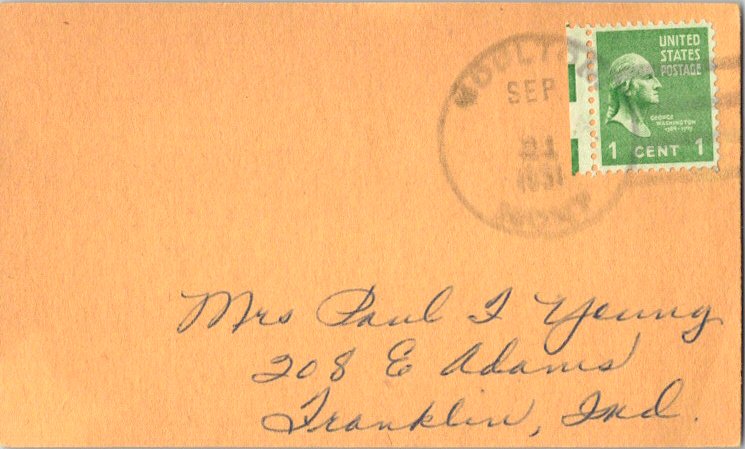 MOULTON
SEP
21
1951
MONT
UNITED
STATES
POSTAGE
GEORGE
WASHINGTON
1789-1797
1 CENT 1
Mrs Paul I Young
208 E Adams
Franklin, Ind.